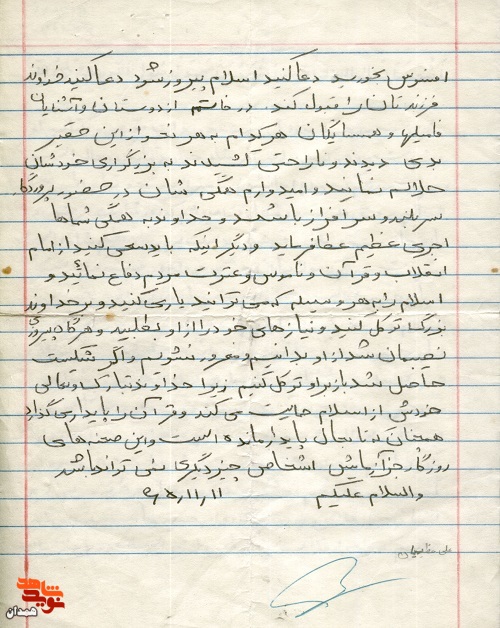 افسوس بخورید دعا کنید اسلام پیروز شود دعا کنید خداوند
فرزندتان را قبول کند. در خاتمه از دوستان و آشنایان
فامیلها و همسایگان هر کدام به هر نحو از این حقیر
بدی دیدند و ناراحتی کشیدند به بزرگواری خودشان
حلالم نمایند و امیدوارم همگی شان در حضور پروردگار
سربلند و سرافراز باشند و خداوند به همگی شماها
اجری عظیم عطا فرماید و دیگر اینکه باید سعی کنید از امام
انقلاب و قرآن و ناموس و عترت مردم دفاع نمائید و
اسلام را به هر وسیله که می توانید یاری کنید و بر خداوند
بزرگ توکل کنید و نیازهای خود را از او بطلبید و هرگاه پیروزی
نصیبمان شد از او بدانیم و مغرور نشویم و اگر شکست
حاصل شد باز بر او توکل کنیم زیرا خداوند تبارک و تعالی
خودش از اسلام حمایت می کند و قرآن را پایداری گذارد
همچنان که تا بحال پایدار مانده است و این صحنه های
روزگار جز آزمایش اشخاص چیز دیگری نمی تواند باشد
والسلام علیکم ۶۵/۱۱/۱۱
علی
نوید شاهد
همدان